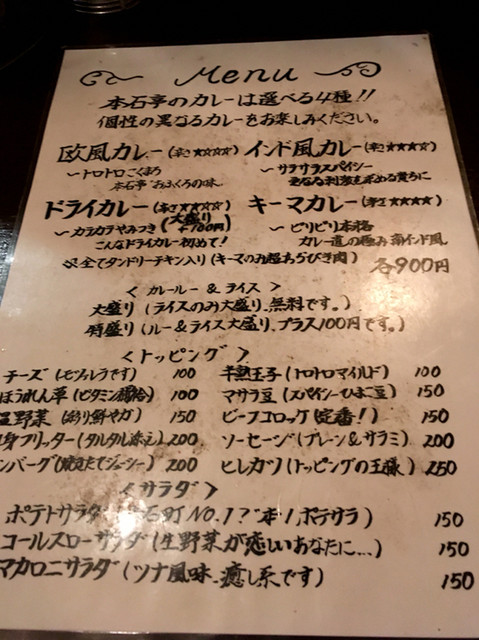 Menu
本石亭のカレーは選べる4種!!
個性の異なるカレーをお楽しみください。
欧風カレー(辛さ★☆☆☆) インド風カレー(辛さ★★☆☆)
〜トロトロこくまろ 〜サラサラスパイシー
本石亭"おふくろの味" 更なる刺激を求める貴方に
ドライカレー(辛さ★★☆☆) キーマカレー(辛さ★★★★)
〜カラカラやみつき(大盛り+100円) 〜ピリピリ本格
こんなドライカレー初めて! カレー道の極み南インド風
☆全てタンドリーチキン入り(キーマのみ超あらびき肉) 各900円
<カレールー&ライス>
大盛り(ライスのみ大盛り、無料です。)
特盛り(ルー&ライス大盛り、プラス100円です。)
<トッピング>
チーズ(モツァレラです) 100 半熟玉子(トロトロマイルド) 100
ほうれん草(ビタミン補給) 100 マサラ豆(スパイシーひよこ豆) 150
温野菜(彩り鮮やか) 150 ビーフコロッケ(定番!) 150
身フリッター(タルタル添え) 200 ソーセージ(プレーン&サラミ) 200
ンバーグ(焼きたてジューシー) 200 ヒレカツ(トッピングの王様) 250
<サラダ>
ポテトサラダ 石町NO.1?"本1"ポテサラ) 150
コールスローサラダ(生野菜が恋しいあなたに…) 150
マカロニサラダ(ツナ風味、癒し系です) 150